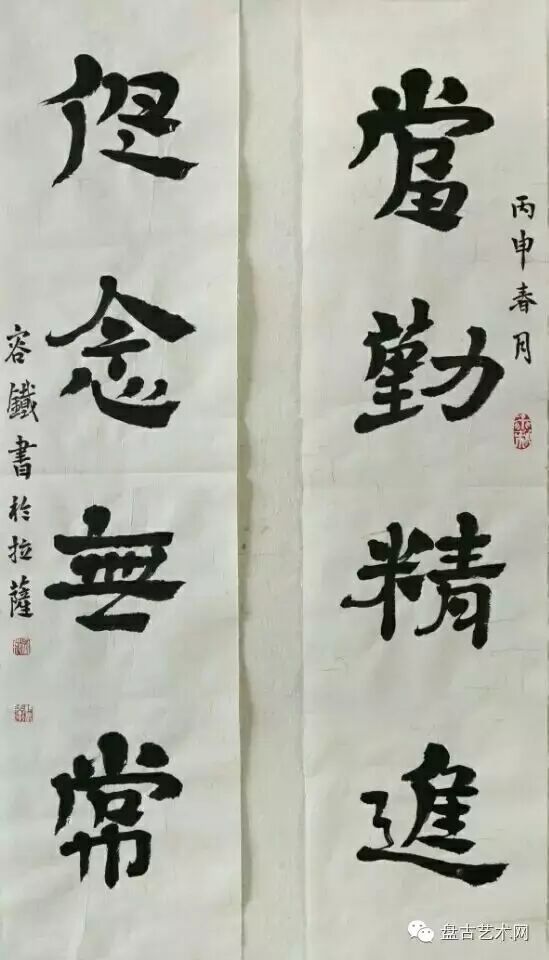 丙申春月
當勤精進
但念無常
容鐵書於拉薩
盘古艺术网